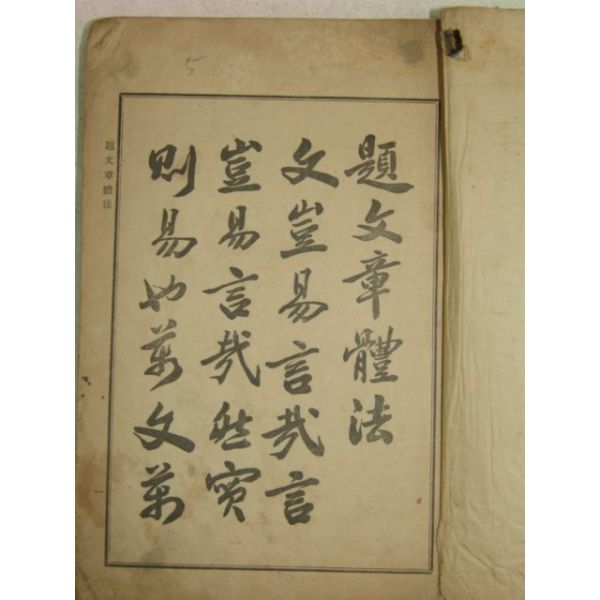 題文章體法
文豈易言哉言
豈易言哉然實
則易也萬文萬
題文章體法
5